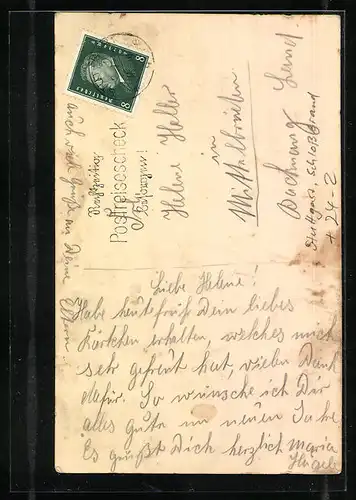 Liebe Helene!
Habe heute früh Dein liebes
Kärtchen erhalten, welches mich
sehr gefreut hat, vielen Dank
dafür. So wünsche ich Dir
alles gute im neuen Jahre
Es grüßt Dich herzlich Maria
auch viele Grüße an Deine
Eltern.
8 8
Rechtzeitig
Postreisescheck
besorgen!
Helene Holler
in
Mittelbrüden
Backnang Land
Stuttgart, Schloßbrand
+ 24-2